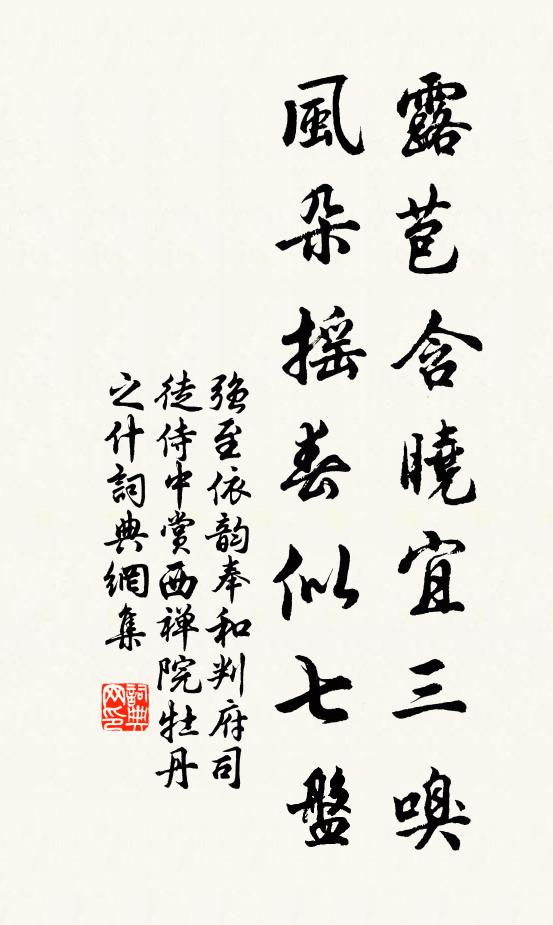 露苞含曉宜三嗅
風朵摇春似七盤
强至依韵奉和判府司
徒侍中賞西禅院牡丹
之什詞典網集
詞典网印